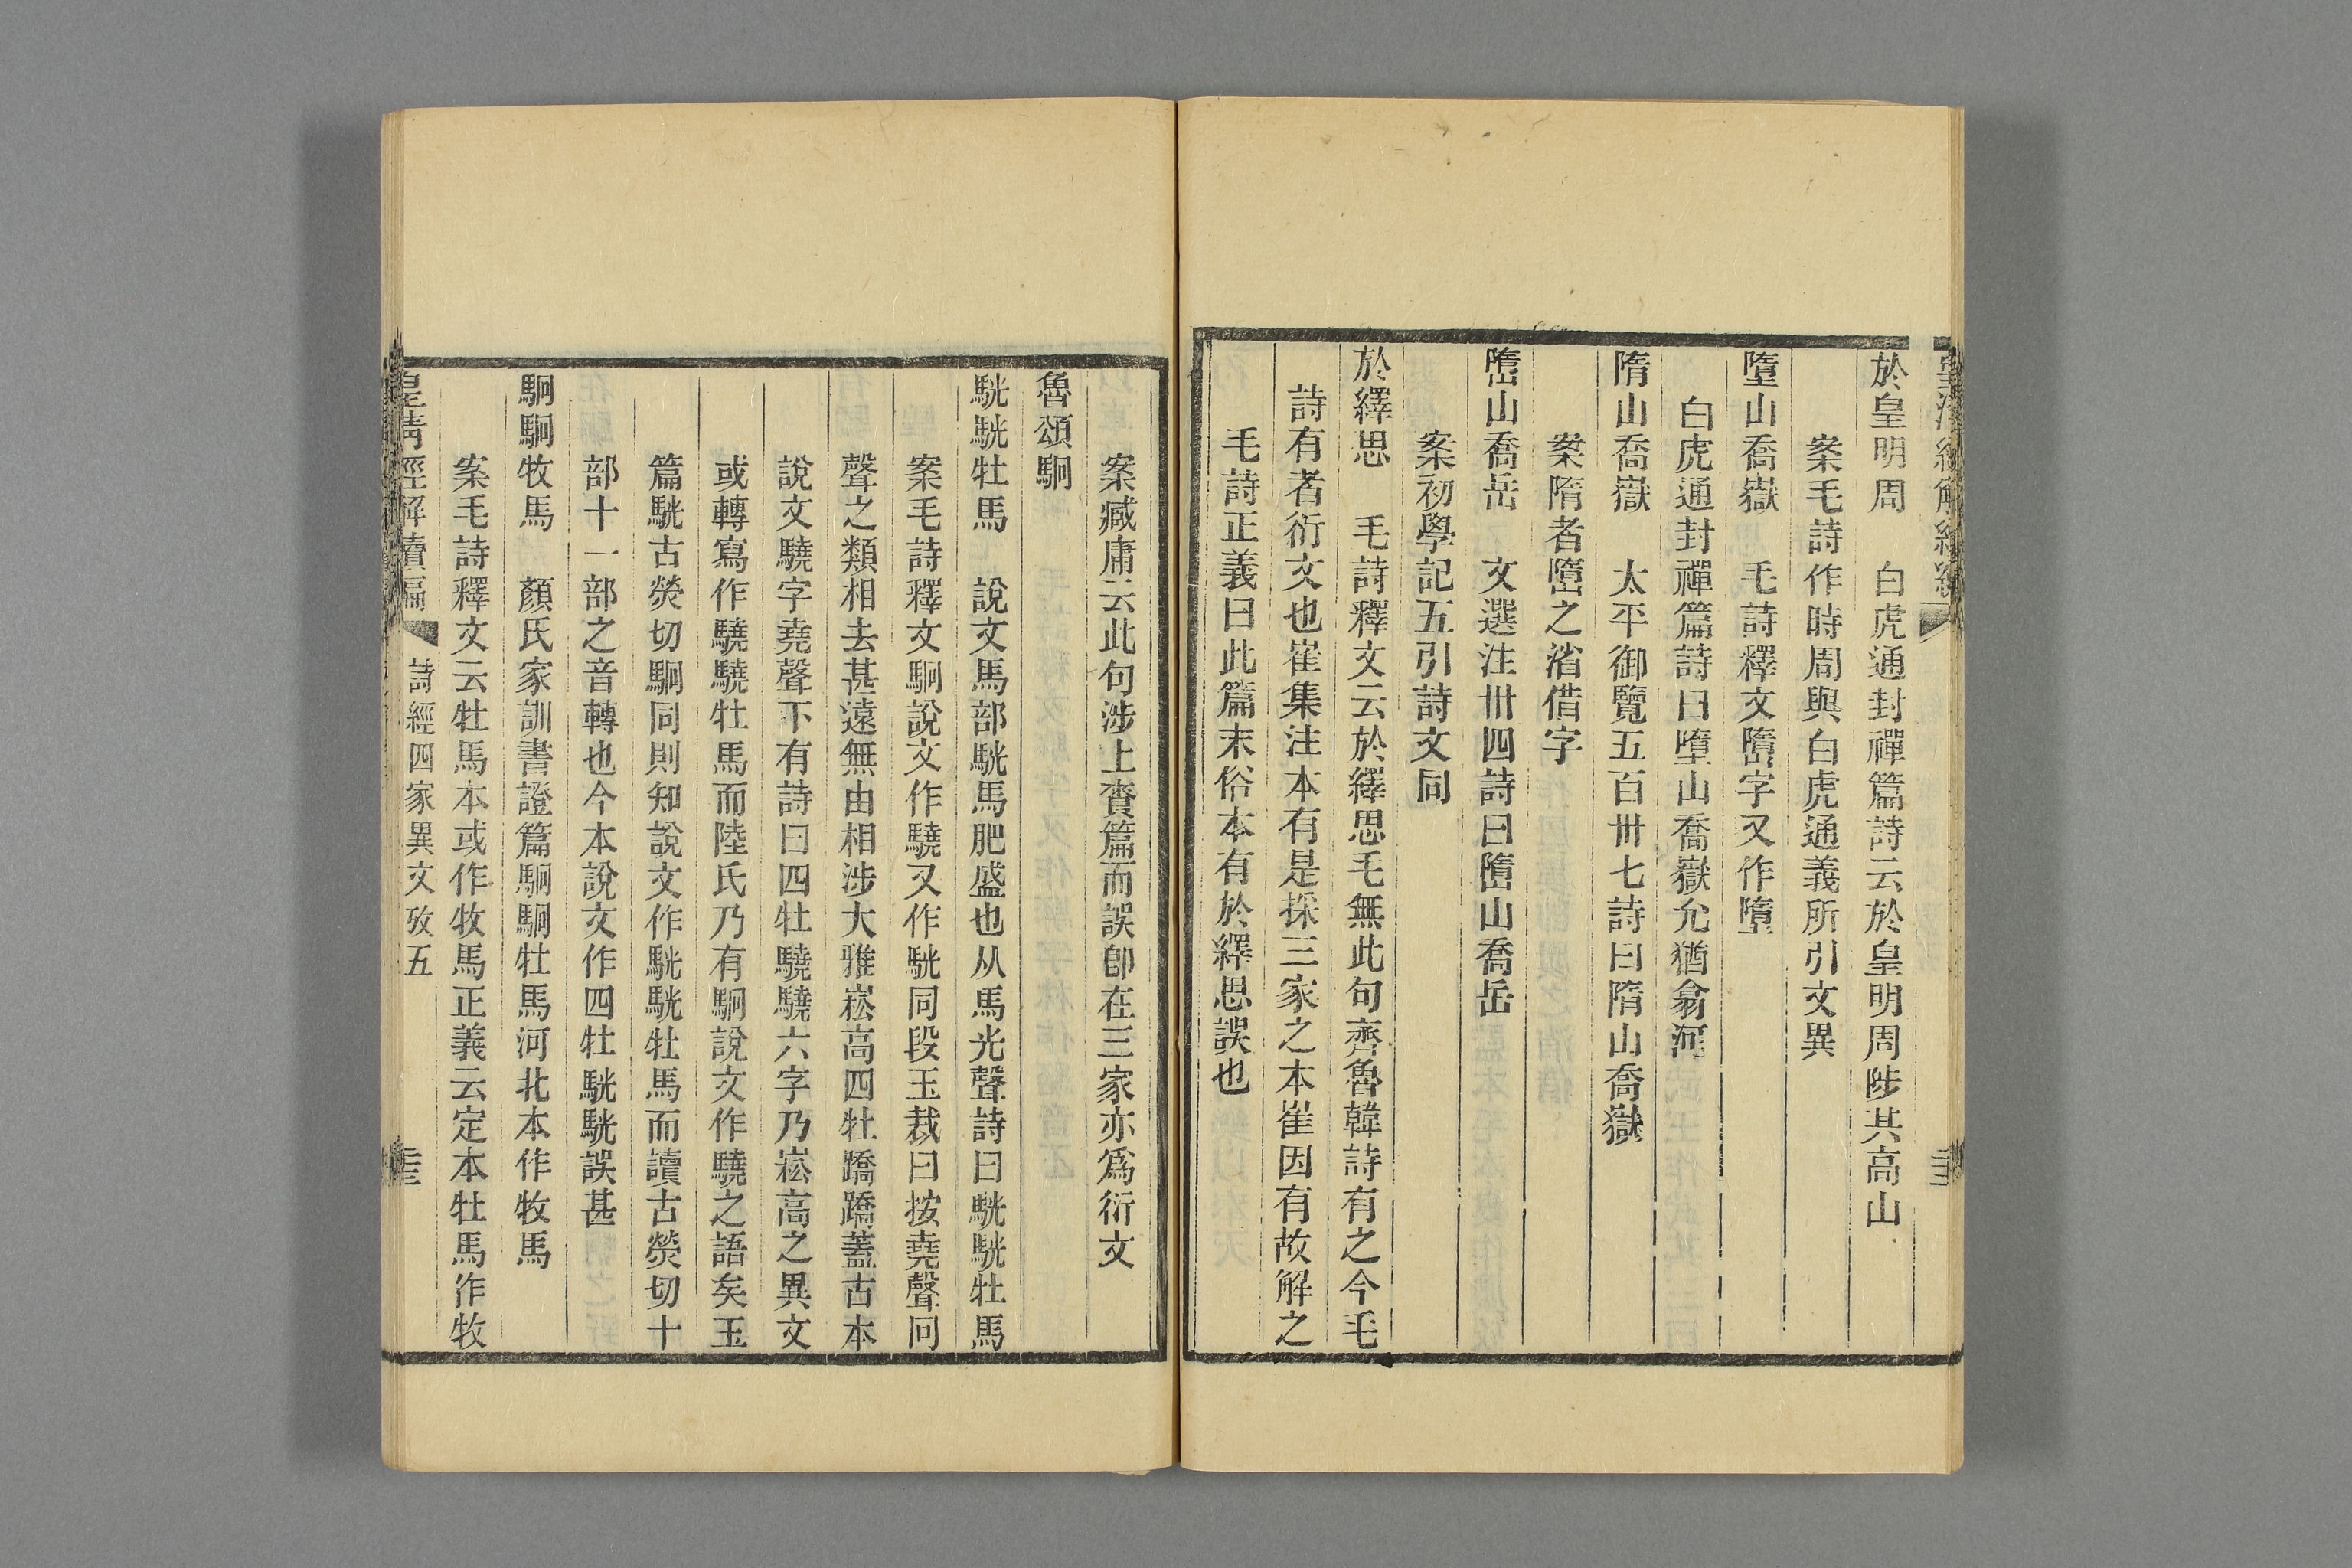 於皇明周　白虎通封禪篇詩云於皇明周陟其高山
案毛詩作時周與白虎通義所引文異
墮山喬嶽　毛詩釋文嶞字又作墮
白虎通封禪篇詩曰墮山喬嶽允猶翕河
隋山喬嶽　太平御覽五百卅七詩曰隋山喬嶽
案隋者嶞之渻借字
嶞山喬岳　文選注卅四詩曰嶞山喬岳
案初學記五引詩文同
於繹思　毛詩釋文云於繹思毛無此句齊魯韓詩有之今毛
詩有者衍文也崔集注本有是採三家之本崔因有故解之
毛詩正義曰此篇末俗本有於繹思誤也
案臧庸云此句涉上賚篇而誤卽在三家亦爲衍文
魯頌駉
駫駫牡馬　說文馬部駫馬肥盛也从馬光聲詩曰駫駫牡馬
案毛詩釋文駉說文作驍又作駫同段玉裁曰按堯聲冋
聲之類相去甚遠無由相涉大雅崧高四牡蹻蹻蓋古本
說文驍字堯聲下有詩曰四牡驍驍六字乃崧高之異文
或轉寫作驍驍牡馬而陸氏乃有駉說文作驍之語矣玉
篇駫古熒切駉同則知說文作駫駫牡馬而讀古熒切十
部十一部之音轉也今本說文作四牡駫駫誤甚
駉駉牧馬　顏氏家訓書證篇駉駉牡馬河北本作牧馬
案毛詩釋文云牡馬本或作牧馬正義云定本牡馬作牧
皇淸經解續編　詩經四家異文攷五